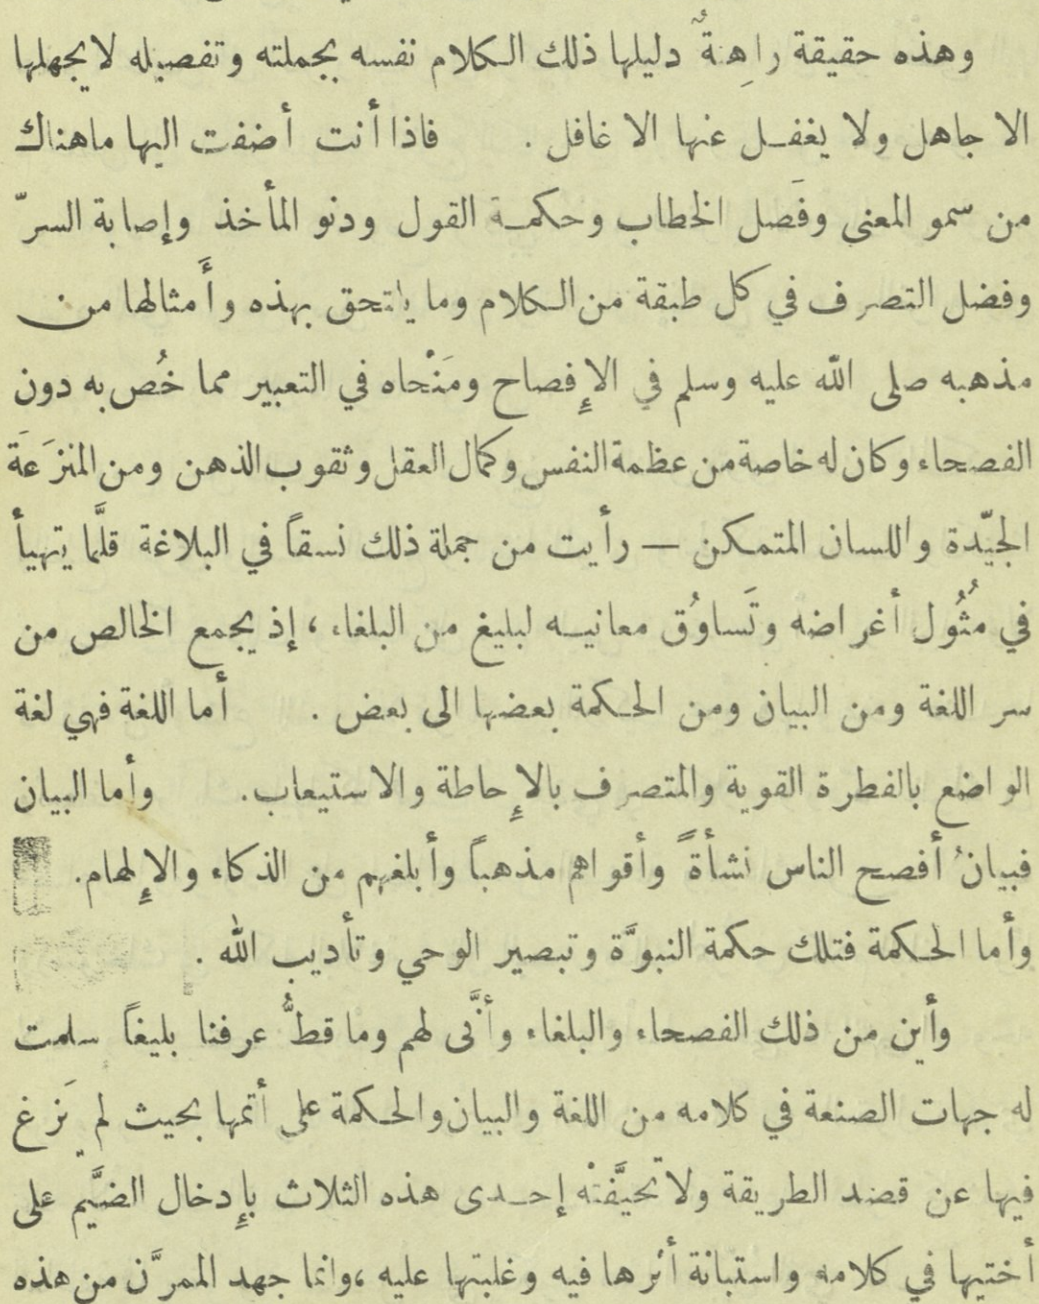 وهذه حقيقة راهنةٌ دليلها ذلك الكلام نفسه بجملته وتفصيله لا يجهلها
الا جاهل ولا يغفل عنها الا غافل . فاذا أنت أضفت اليها ما هناك
من سمو المعنى وفَصل الخطاب وحكمة القول ودنو المأخذ وإصابة السرّ
وفضل التصرف في كل طبقة من الكلام وما يلتحق بهذه وأَمثالها من
مذهبه صلى الله عليه وسلم في الإِفصاح ومَنْحاه في التعبير مما خُص به دون
الفصحاء وكان له خاصة من عظمة النفس وكمال العقل وثقوب الذهن ومن المنزَعَة
الجيّدة واللسان المتمكن — رأيت من جملة ذلك نسقاً في البلاغة قلَّما يتهيأ
في مُثُول أغراضه وتَساوُق معانيه لبليغ من البلغاء ، إذ يجمع الخالص من
سر اللغة ومن البيان ومن الحكمة بعضها الى بعض . أما اللغة فهي لغة
الواضع بالفطرة القوية والمتصرف بالإِحاطة والاستيعاب. وأما البيان
فبيانُ أفصح الناس نشأةً وأقواهم مذهباً وأبلغهم من الذكاء والإِلهام.
وأما الحكمة فتلك حكمة النبوَّة وتبصير الوحي وتأديب الله .
وأين من ذلك الفصحاء والبلغاء وأنَّى لهم وما قطُّ عرفنا بليغاً سلمت
له جهات الصنعة في كلامه من اللغة والبيان والحكمة على أتمها بحيث لم يَزغ
فيها عن قصد الطريقة ولا تحيَّفتْه إحدى هذه الثلاث بإِدخال الضيَّم على
أختيها في كلامه واستبانة أثرها فيه وغلبتها عليه ،وانما جهد الممرَّن من هذه